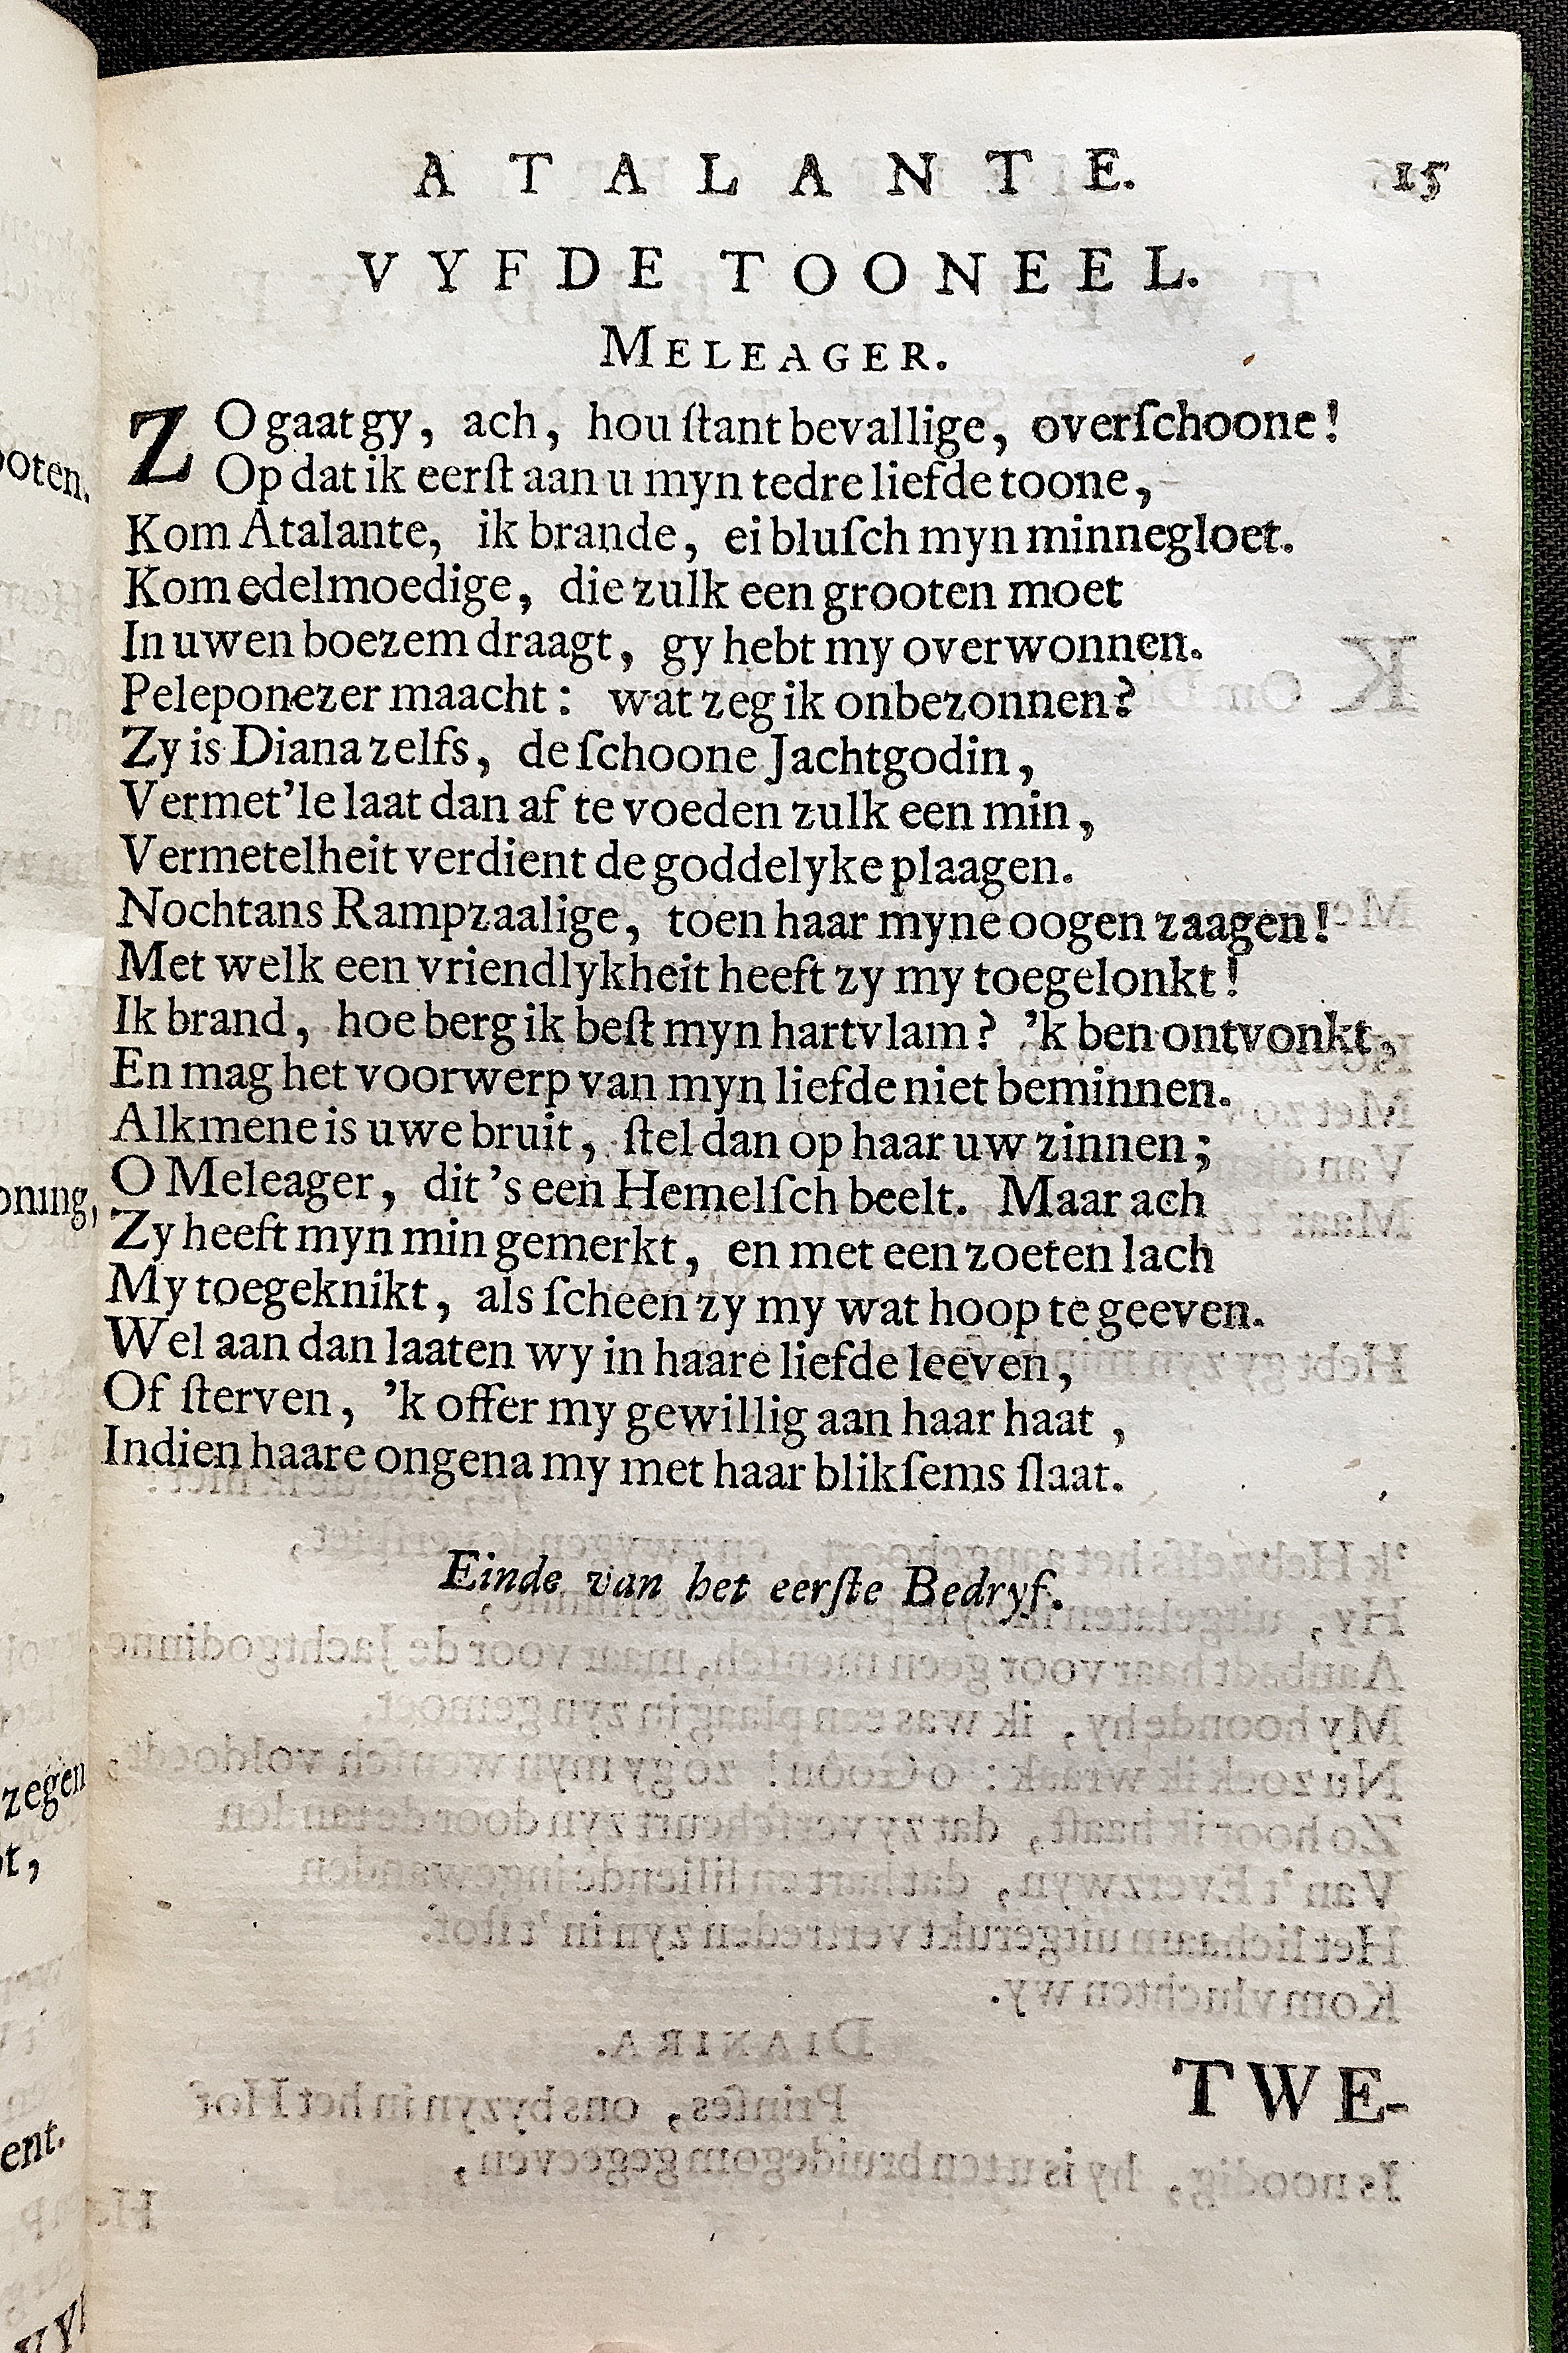 ATALANTE. 15
VYFDE TOONEEL.
MELEAGER.
ZO gaat gy, ach, hou ſtant bevallige, overſchoone!
Op dat ik eerſt aan u myn tedre liefde toone,
Kom Atalante, ik brande, ei bluſch myn minnegloet.
Kom edelmoedige, die zulk een grooten moet
In uwen boezem draagt, gy hebt my overwonnen.
Peleponezer maacht: wat zeg ik onbezonnen?
Zy is Diana zelfs, de ſchoone Jachtgodin,
Vermet'le laat dan af te voeden zulk een min,
Vermetelheit verdient de goddelyke plaagen.
Nochtans Rampzaalige, toen haar myne oogen zaagen!
Met welk een vriendlykheit heeft zy my toegelonkt!
Ik brand, hoe berg ik beſt myn hartvlam? 'k ben ontvonkt,
En mag het voorwerp van myn liefde niet beminnen.
Alkmene is uwe bruit, ſtel dan op haar uw zinnen;
O Meleager, dit 's een Hemelſch beelt. Maar ach
Zy heeft myn min gemerkt, en met een zoeten lach
My toegeknikt, als ſcheen zy my wat hoop te geeven.
Wel aan dan laaten wy in haare liefde leeven,
Of ſterven, 'k offer my gewillig aan haar haat,
Indien haare ongena my met haar blikſems ſlaat.
Einde van het eerſte Bedryf.
TWE-